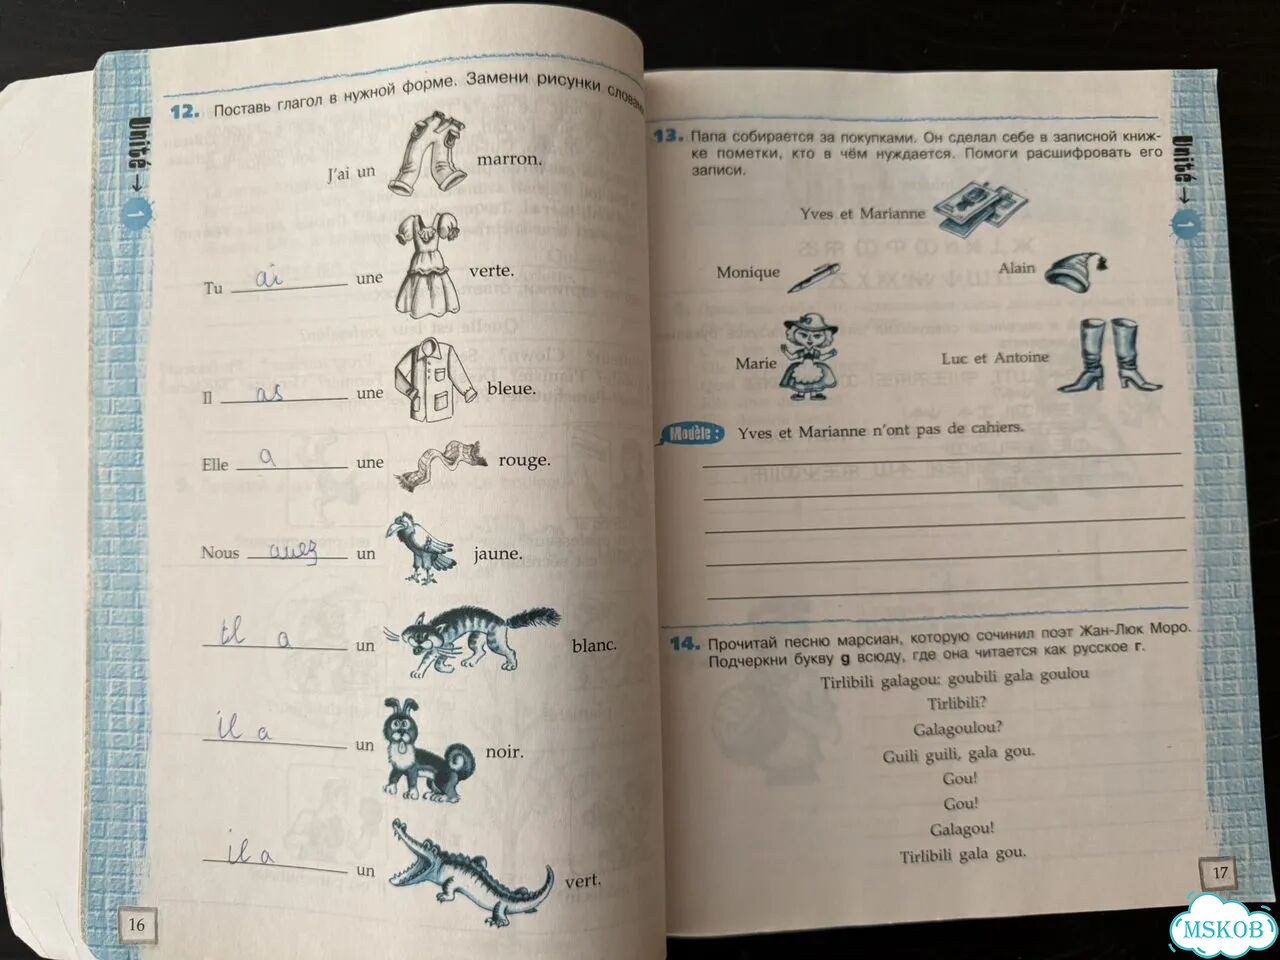 12. Поставь глагол в нужной форме. Замени рисунки словами
J'ai un marron.
Tu ai une verte.
Il as une bleue.
Elle a une rouge.
Nous avez un jaune.
il a un blanc.
il a un noir.
il a un vert.
Unité → 1
16
13. Папа собирается за покупками. Он сделал себе в записной книж-
ке пометки, кто в чём нуждается. Помоги расшифровать его
записи.
Yves et Marianne
Monique
Alain
Marie
Luc et Antoine
Modèle: Yves et Marianne n'ont pas de cahiers.
14. Прочитай песню марсиан, которую сочинил поэт Жан-Люк Моро.
Подчеркни букву g всюду, где она читается как русское г.
Tirlibili galagou: goubili gala goulou
Tirlibili?
Galagoulou?
Guili guili, gala gou.
Gou!
Gou!
Galagou!
Tirlibili gala gou.
Unité → 1
17
MSKOB